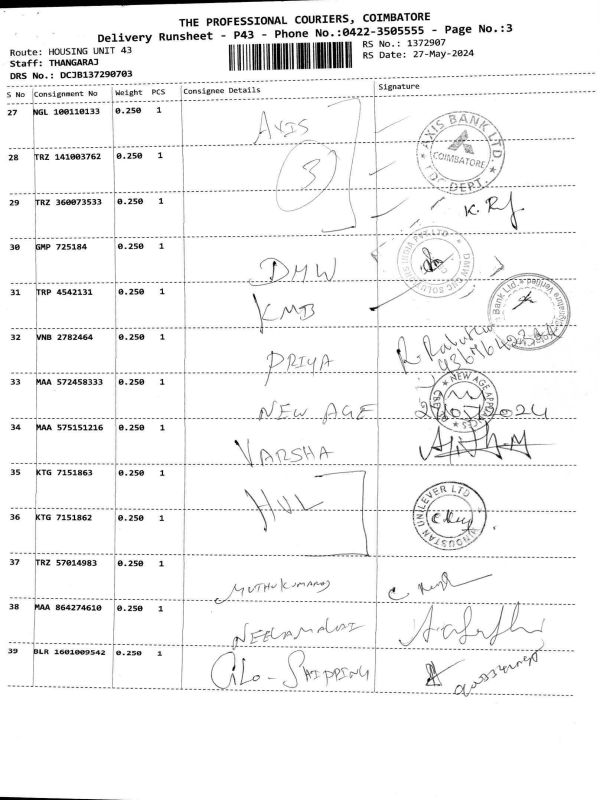 THE PROFESSIONAL COURIERS, COIMBATORE
Delivery Runsheet - P43 - Phone No.:0422-3505555 - Page No.:3
Route: HOUSING UNIT 43
RS No.: 1372907
Staff: THANGARAJ
RS Date: 27-May-2024
DRS No.: DCJB137290703
S No Consignment No Weight PCS Consignee Details Signature
27 NGL 100110133 0.250 1 AXIS
AXIS BANK LTD. COIMBATORE DEPT.
28 TRZ 141003762 0.250 1 3
29 TRZ 360073533 0.250 1
30 GMP 725184 0.250 1 DMW
31 TRP 4542131 0.250 1 KMB
32 VNB 2782464 0.250 1 PRIYA
33 MAA 572458333 0.250 1 NEW AGE
NEW AGE
34 MAA 575151216 0.250 1 VARSHA
35 KTG 7151863 0.250 1 HUL
HINDUSTAN UNILEVER LTD
36 KTG 7151862 0.250 1
37 TRZ 57014983 0.250 1 MUTHUKUMARAJ
38 MAA 864274610 0.250 1
39 BLR 1601009542 0.250 1 GLO-SHIPPING